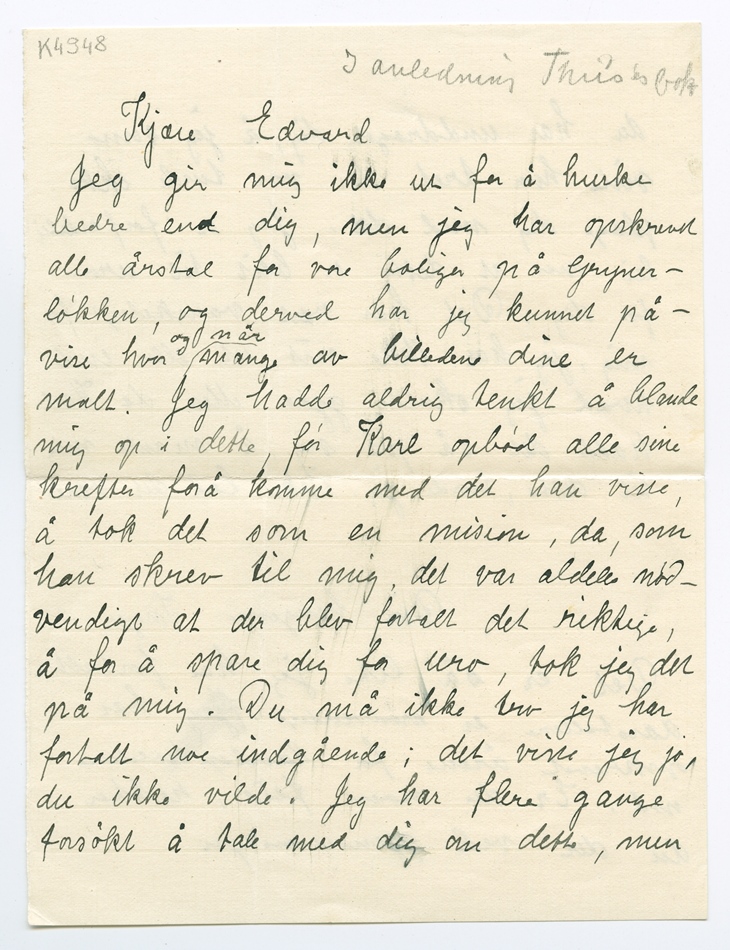 K4948
I anledning Thiis'es bok
Kjære Edvard
Jeg gir mig ikke ut for å huske
bedre end dig, men jeg har opskrevet
alle årstal for vore boliger på Gryner-
løkken, og derved har jeg kunnet på-
og når
vise hvor mange av billedene dine er
malt. Jeg hadde aldrig tenkt å blande
mig op i dette, før Karl opbød alle sine
krefter forå komme med det han viste,
å tok det som en mision, da, som
han skrev til mig, det var aldeles nød-
vendigt at der blev fortalt det riktige,
å for å spare dig for uro, tok jeg det
på mig. Du må ikke tro jeg har
fortalt noe indgående; det viste jeg jo,
du ikke vilde. Jeg har flere gange
forsøkt å tale med dig om dette, men